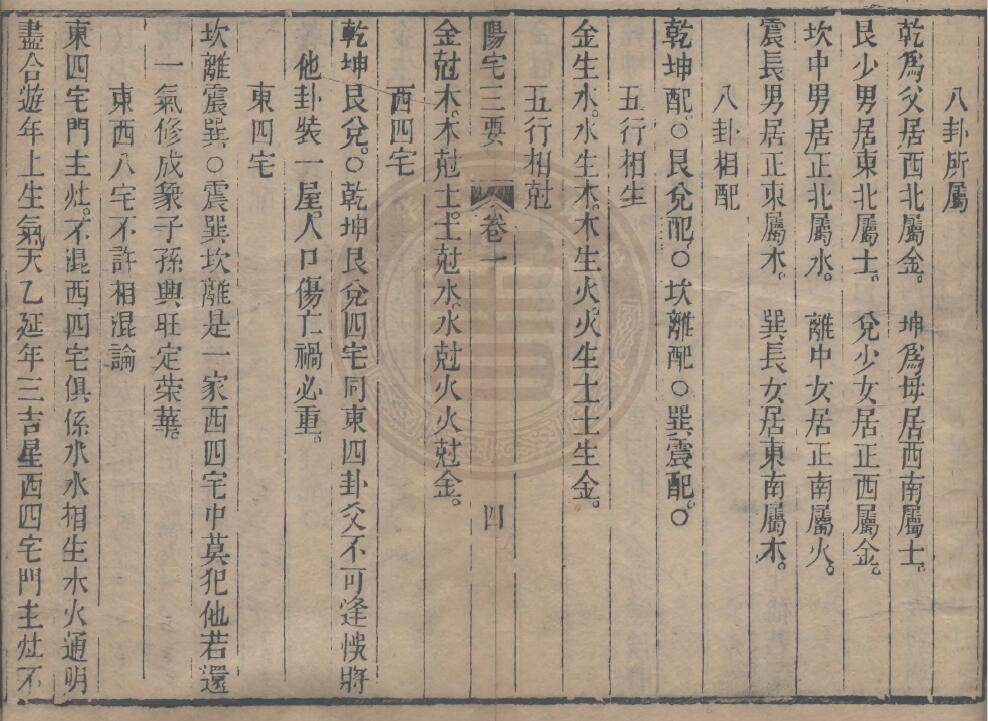 八卦所屬
乾爲父居西北屬金。　坤爲母居西南屬土。
艮少男居東北屬土。　兌少女居正西屬金。
坎中男居正北屬水。　離中女居正南屬火。
震長男居正東屬木。　巽長女居東南屬木。
八卦相配
乾坤配。○艮兌配。○坎離配○巽震配。○
五行相生
金生水。水生木。木生火。火生土土生金。
五行相尅
陽宅三要　卷一　四
金尅木。木尅土。土尅水。水尅火火尅金。
西四宅
乾坤艮兌。○乾坤艮兌四宅同東四卦爻不可逢悞將
他卦裝一屋。人口傷亡禍必重。
東四宅
坎離震巽○震巽坎離是一家西四宅中莫犯他若還
一氣修成象子孫興旺定荣華。
東西八宅不許相混論
東四宅門主灶。不混西四宅俱係水木相生木火通明
盡合遊年上生氣天乙延年三吉星西四宅門主灶不